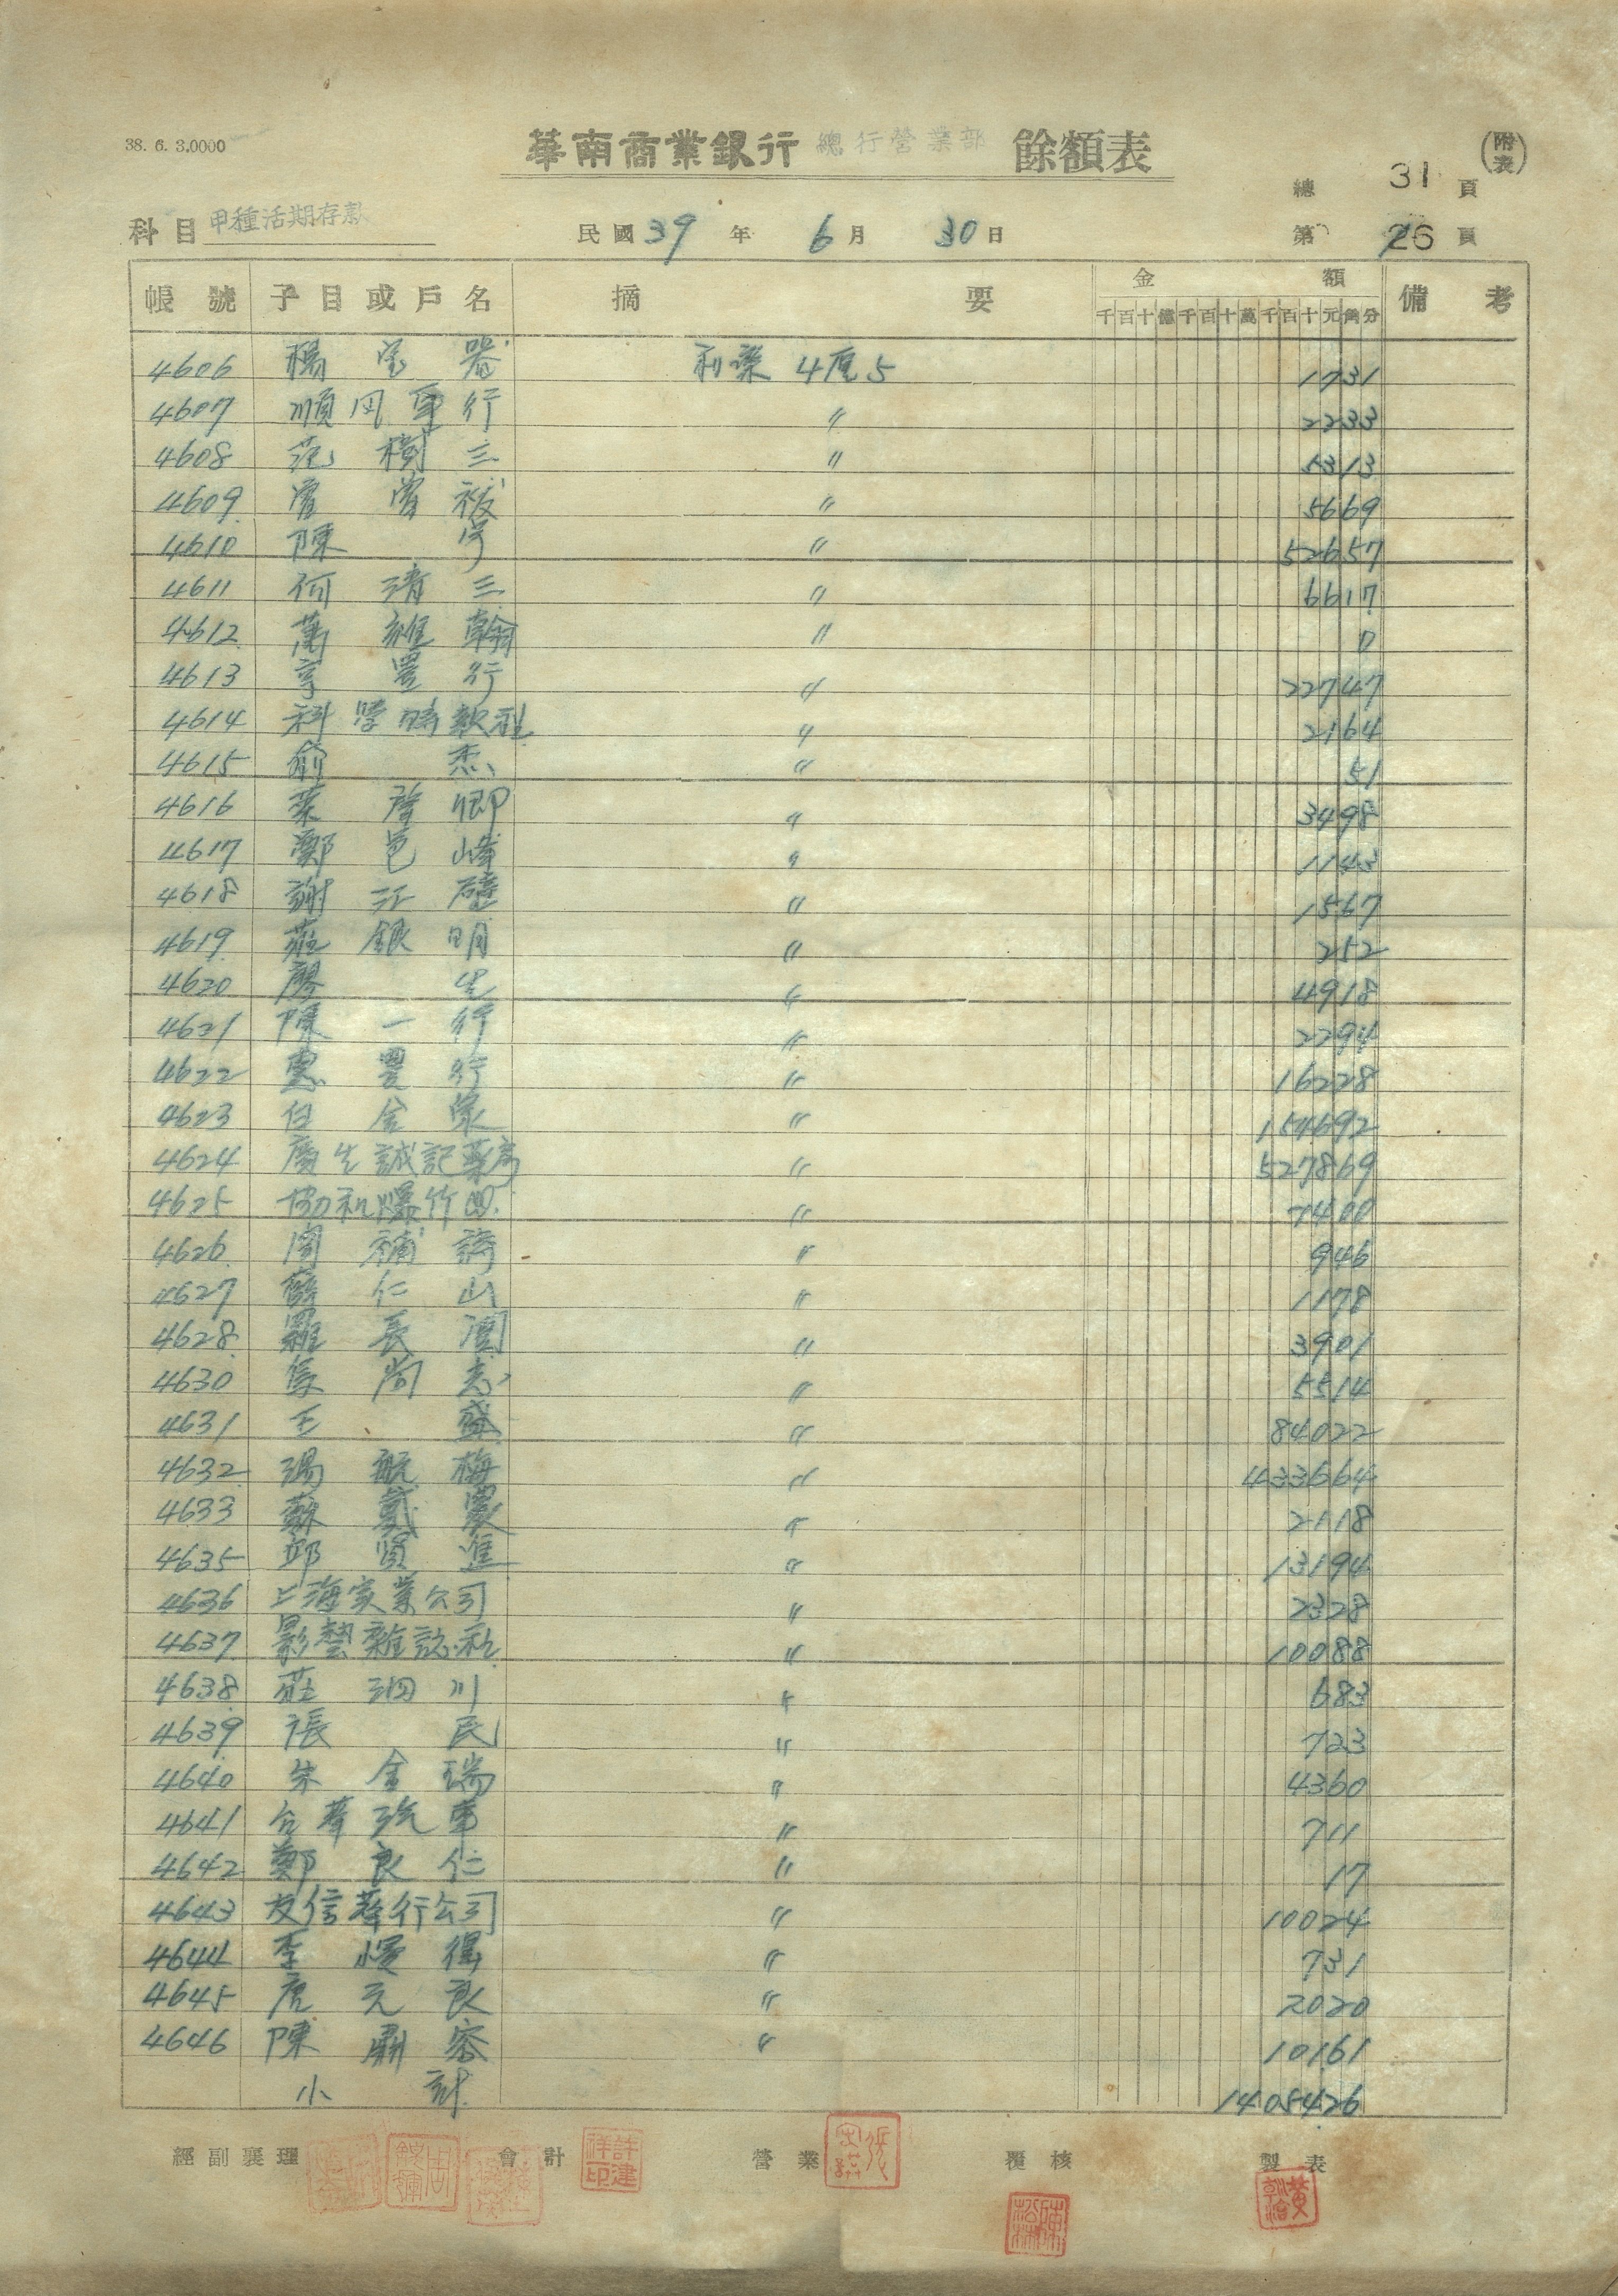 38. 6. 3.0000
華南商業銀行 總行營業部 餘額表
(附表)
總 31 頁
科目 甲種活期存款 民國 39 年 6 月 30 日 第 26 頁
帳號 子目或戶名 摘要 金額 備考
千百十億千百十萬千百十元角分
4606 楊宝器 利率 4厘5 1731
4607 順風車行 〃 2233
4608 范樹三 〃 5313
4609 〃 5669
4610 陳 〃 52657
4611 何清三 〃 6617
4612 萬維翰 〃 0
4613 亨豐行 〃 22747
4614 科學 〃 2164
4615 俞杰 〃 51
4616 葉啓卿 〃 3498
4617 鄭邑峰 〃 1143
4618 謝江壁 〃 1567
4619 莊銀明 〃 252
4620 廖 〃 4918
4621 陳一行 〃 2294
4622 惠豐行 〃 16228
4623 白金泉 〃 154692
4624 廣生誠記藥房 〃 527869
4625 協和爆竹 〃 7400
4626 周補 〃 946
4627 薛仁山 〃 1178
4628 羅長闓 〃 3901
4630 吳尚志 〃 5514
4631 王盛 〃 84022
4632 湯航梅 〃 433664
4633 蘇 〃 2118
4635 邱賢進 〃 13194
4636 上海家業公司 〃 2328
4637 影藝雜誌社 〃 10088
4638 莊泗川 〃 683
4639 張民 〃 723
4640 朱金瑞 〃 4360
4641 台華汽車 〃 711
4642 鄭良仁 〃 17
4643 友信華行公司 〃 10024
4644 李 〃 731
4645 唐元良 〃 2020
4646 陳鼎容 〃 10161
小計 1408426
經副襄理 會計 許建祥印 營業 覆核 製表